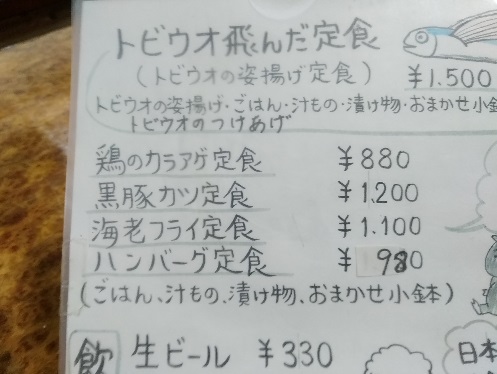 トビウオ飛んだ定食
(トビウオの姿揚げ定食) ¥1.500
トビウオの姿揚げ・ごはん・汁もの・漬け物・おまかせ小鉢
トビウオのつけあげ
鶏のカラアゲ定食 ¥880
黒豚カツ定食 ¥1,200
海老フライ定食 ¥1.100
ハンバーグ定食 ¥980
(ごはん、汁もの、漬け物、おまかせ小鉢)
飲 生ビール ¥330
日本